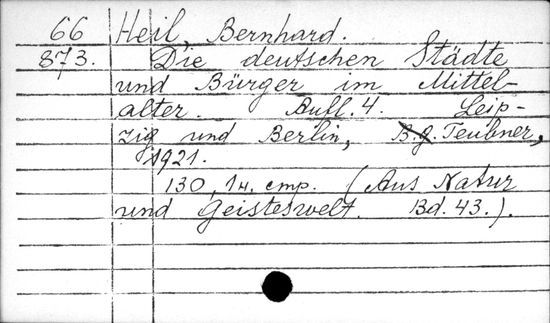 66 Heil, Bernhard.
873. Die deutschen Städte
und Bürger im Mittel-
alter. Aufl. 4. Leip-
zig und Berlin, B.G. Teubner,
1921.
130, 1 н. стр. (Aus Natur
und Geisteswelt. Bd. 43.).